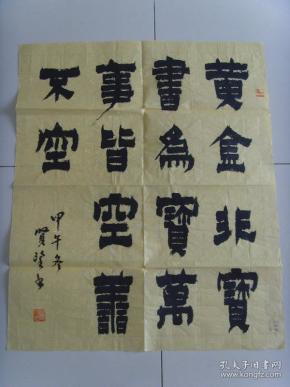 黄金非寶
書為寶萬
事皆空善
不空
甲午冬
賢
孔夫子旧书网
www.kongfz.com